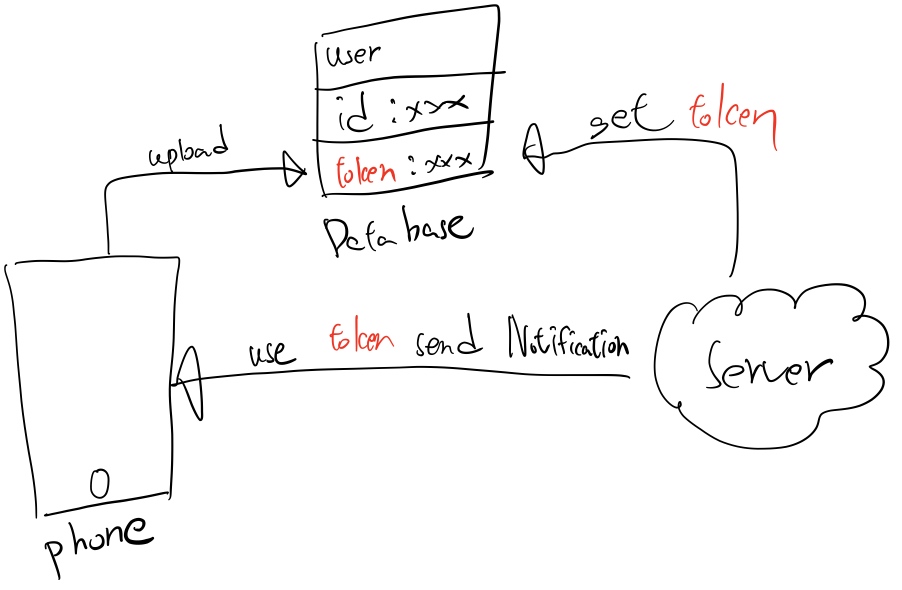 user
id : xxx
token : xxx
Database
upload
get token
use token send Notification
Server
phone